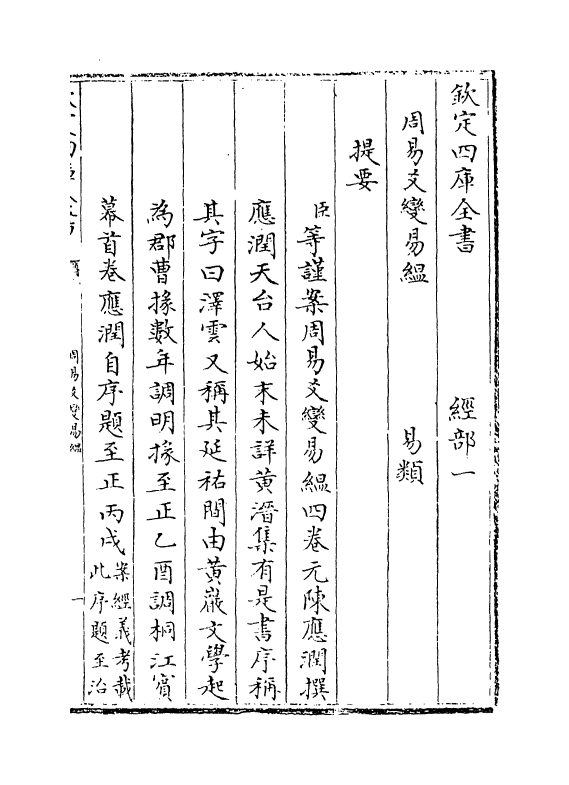 欽定四庫全書　經部一
周易爻變易縕　易類
提要
臣等謹案周易爻變易縕四卷元陳應潤撰
應潤天台人始末未詳黃溍集有是書序稱
其字曰澤雲又稱其延祐間由黃巖文學起
為郡曹掾數年調明掾至正乙酉調桐江賓
幕首卷應潤自序題至正丙戌案經義考載
此序題至治
周易爻變易縕
一